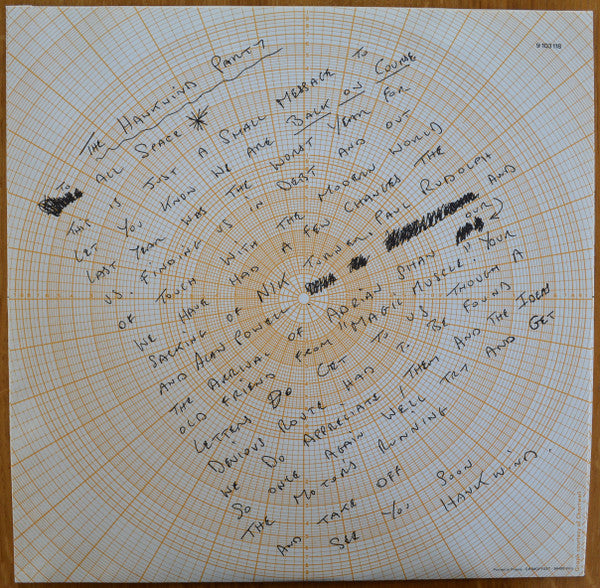 9 103 118
THE HAWKWIND PARTY
TO ALL SPACE
THIS IS JUST A SMALL MESSAGE TO
LET YOU KNOW WE ARE BACK ON COURSE
LAST YEAR WAS THE WORST YEAR FOR
US. FINDING US IN DEBT AND OUT
OF TOUCH WITH THE MODERN WORLD
WE HAVE HAD A FEW CHANGES THE
SACKING OF NIK TURNER, PAUL RUDOLPH
AND ALAN POWELL AND
THE ARRIVAL OF ADRIAN SHAW OUR
OLD FRIEND FROM "MAGIC MUSCLE". YOUR
LETTERS DO GET TO US THOUGH A
DEVIOUS ROUTE HAD TO BE FOUND
WE DO APPRECIATE THEM AND THE IDEAS
SO ONCE AGAIN WE'LL TRY AND GET
THE MOTORS RUNNING
AND TAKE OFF SOON
SEE YOU HAWKWIND.